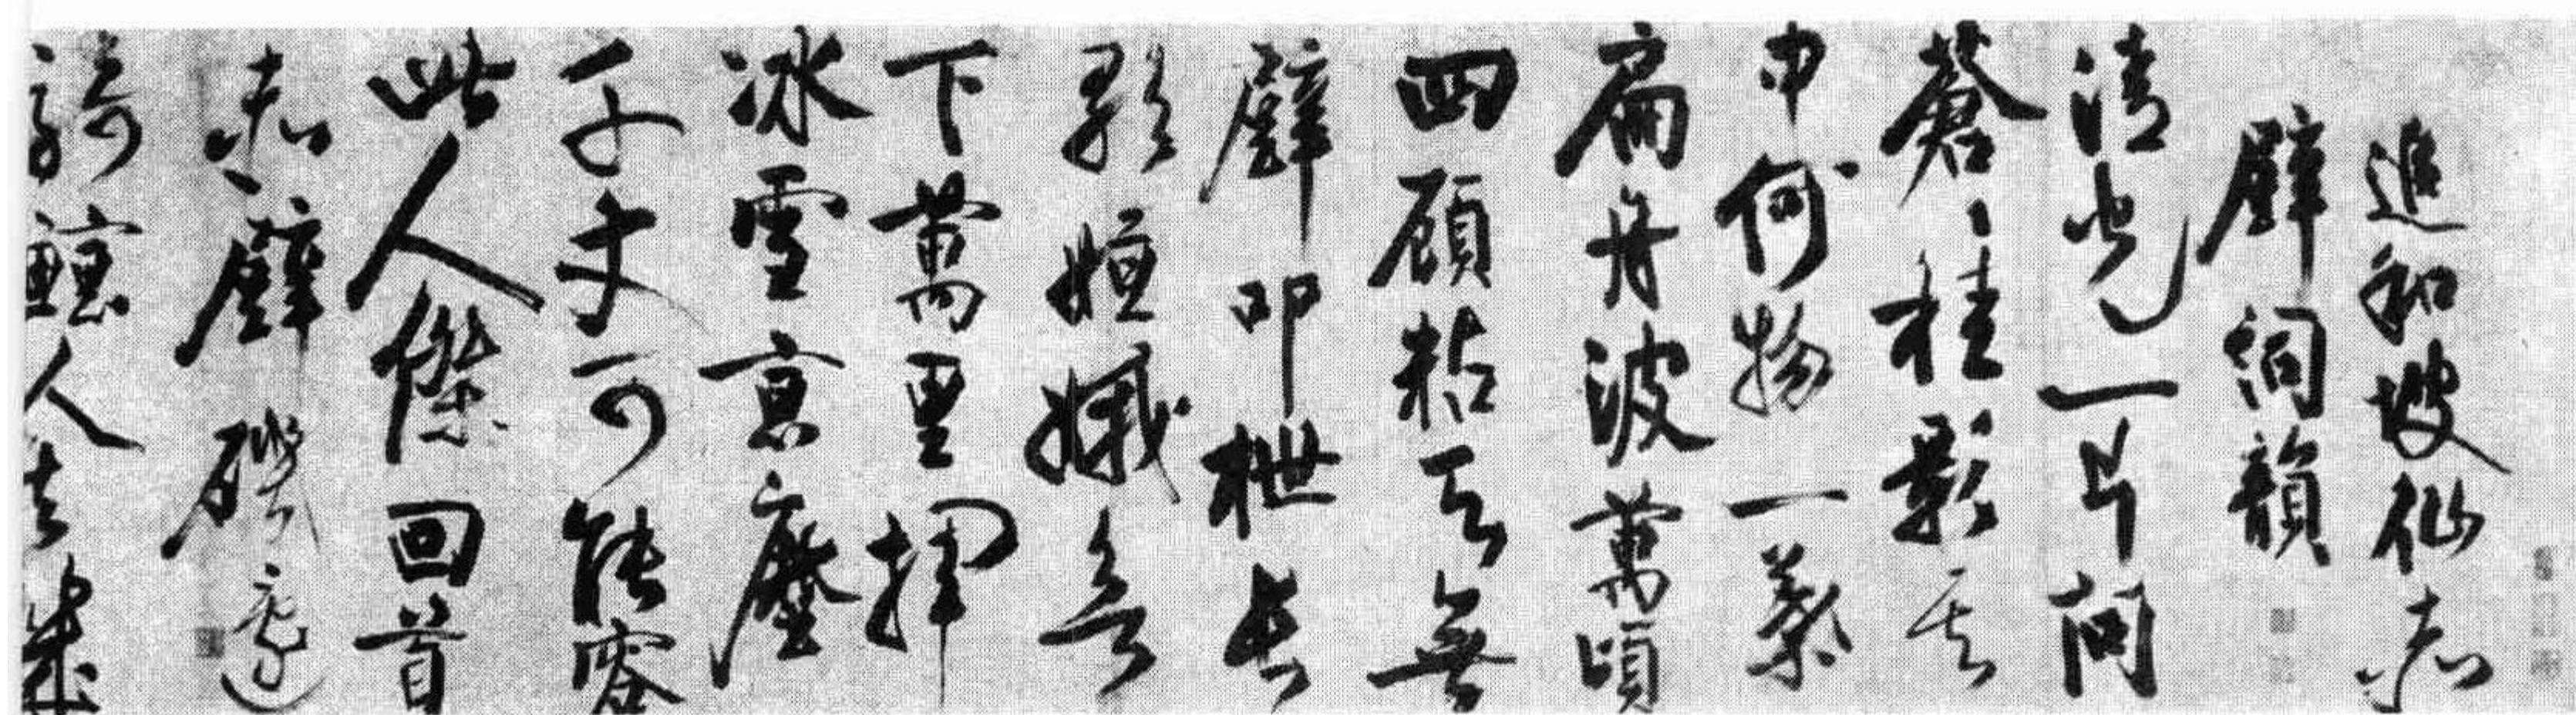 追和坡仙赤
壁詞韻
清光一片問
蒼〻桂影其
中何物一葉
扁舟波萬頃
四顧粘天無
壁叩枻長
歌姮娥欲
下萬里揮
冰雪京塵
千丈可能容
此人傑回首
赤壁磯邊
騎鯨人去幾